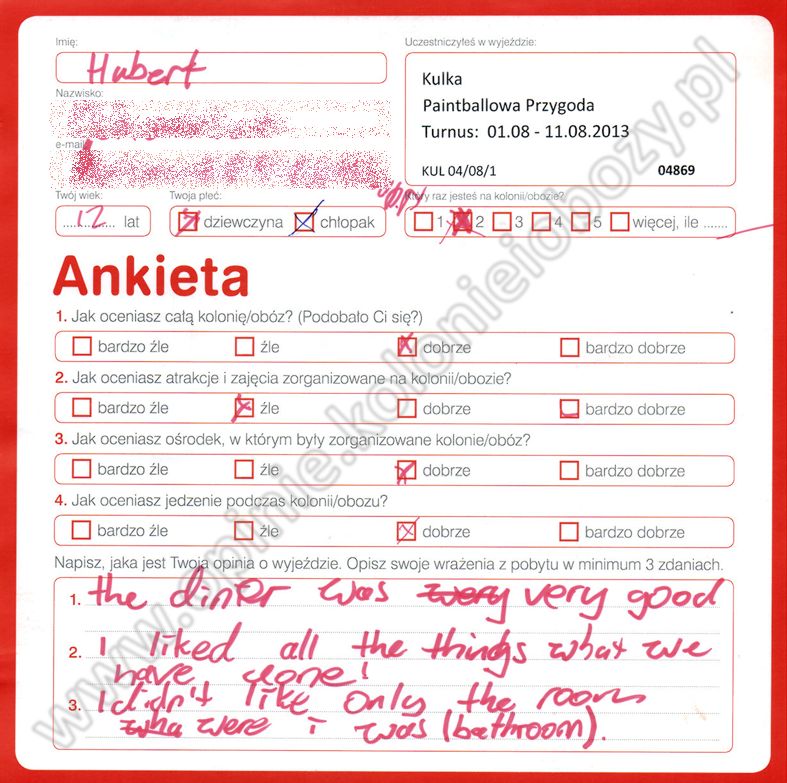 Imię:
Uczestniczyłeś w wyjeździe:
Hubert
Kulka
Paintballowa Przygoda
Turnus: 01.08 - 11.08.2013
KUL 04/08/1 04869
Nazwisko:
e-mail:
Twój wiek: Twoja płeć: Który raz jesteś na kolonii/obozie?
12 lat dziewczyna chłopak 1 2 3 4 5 więcej, ile .......
Ankieta
1. Jak oceniasz całą kolonię/obóz? (Podobało Ci się?)
bardzo źle źle dobrze bardzo dobrze
2. Jak oceniasz atrakcje i zajęcia zorganizowane na kolonii/obozie?
bardzo źle źle dobrze bardzo dobrze
3. Jak oceniasz ośrodek, w którym były zorganizowane kolonie/obóz?
bardzo źle źle dobrze bardzo dobrze
4. Jak oceniasz jedzenie podczas kolonii/obozu?
bardzo źle źle dobrze bardzo dobrze
Napisz, jaka jest Twoja opinia o wyjeździe. Opisz swoje wrażenia z pobytu w minimum 3 zdaniach.
1. the dinner was very good
2. I liked all the things what we
have done!
3. I didn't like only the room
were i was (bathroom).
www.opinie.kolonieiobozy.pl